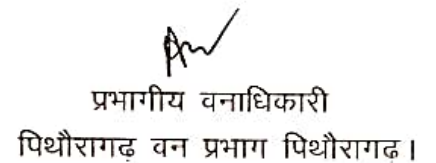 प्रभागीय वनाधिकारी
पिथौरागढ़ वन प्रभाग पिथौरागढ़।